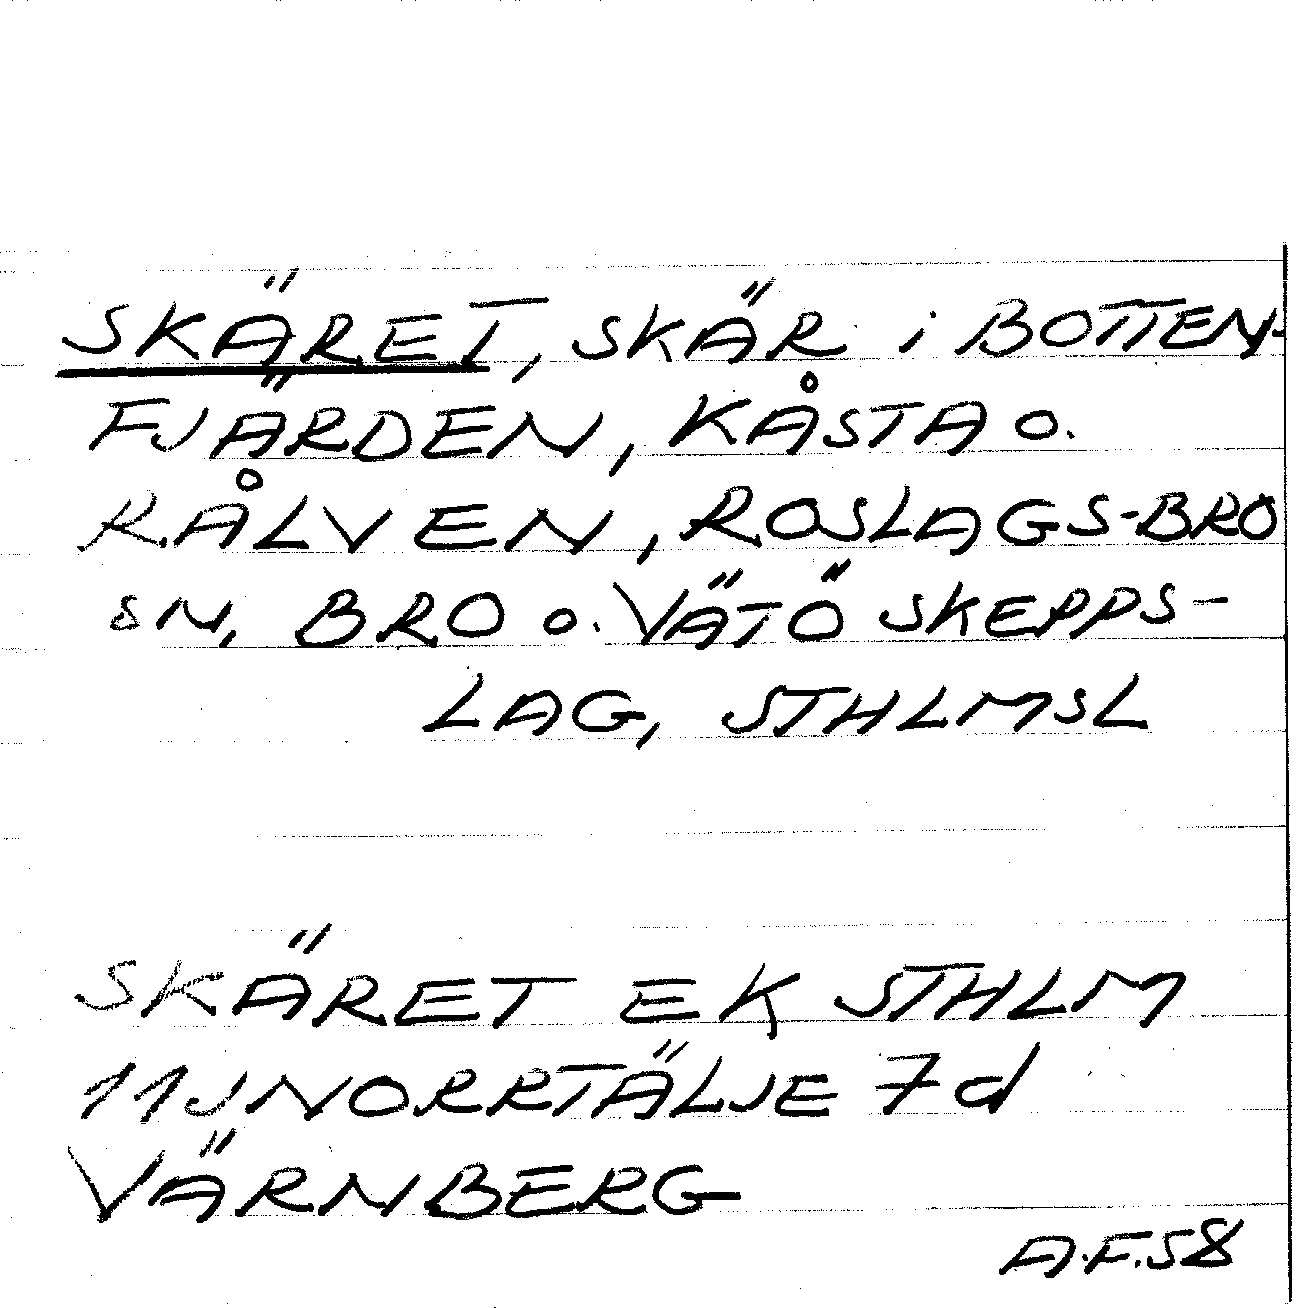 SKÄRET, SKÄR i BOTTEN-
FJÄRDEN, KÅSTA o.
RÅLVEN, ROSLAGS-BRO
SN, BRO o. VÄTÖ SKEPPS-
LAG, STHLMSL
SKÄRET EK STHLM
11J NORRTÄLJE 7d
VÄRNBERG
A.F.58